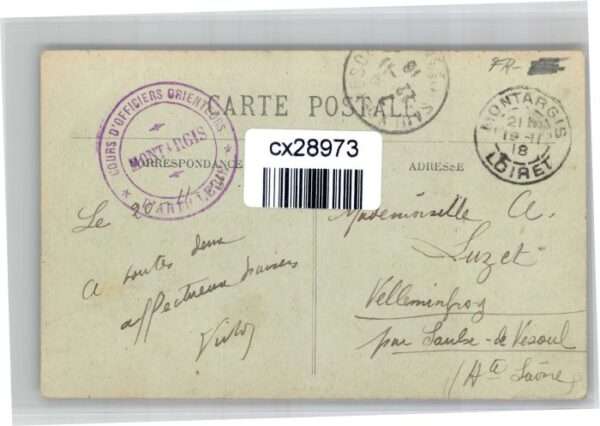 FR-
COURS D'OFFICIERS ORIENTEURS
MONTARGIS
CARTE POSTALE
MONTARGIS
21
19-11
18
LOIRET
cx28973
CORRESPONDANCE
ADRESSE
Le 20-11
A toutes deux
affectueux baisers
Victor
Mademoiselle A.
Luzet
Velleminfroy
par Saulx-de-Vesoul
(Hte Saône)